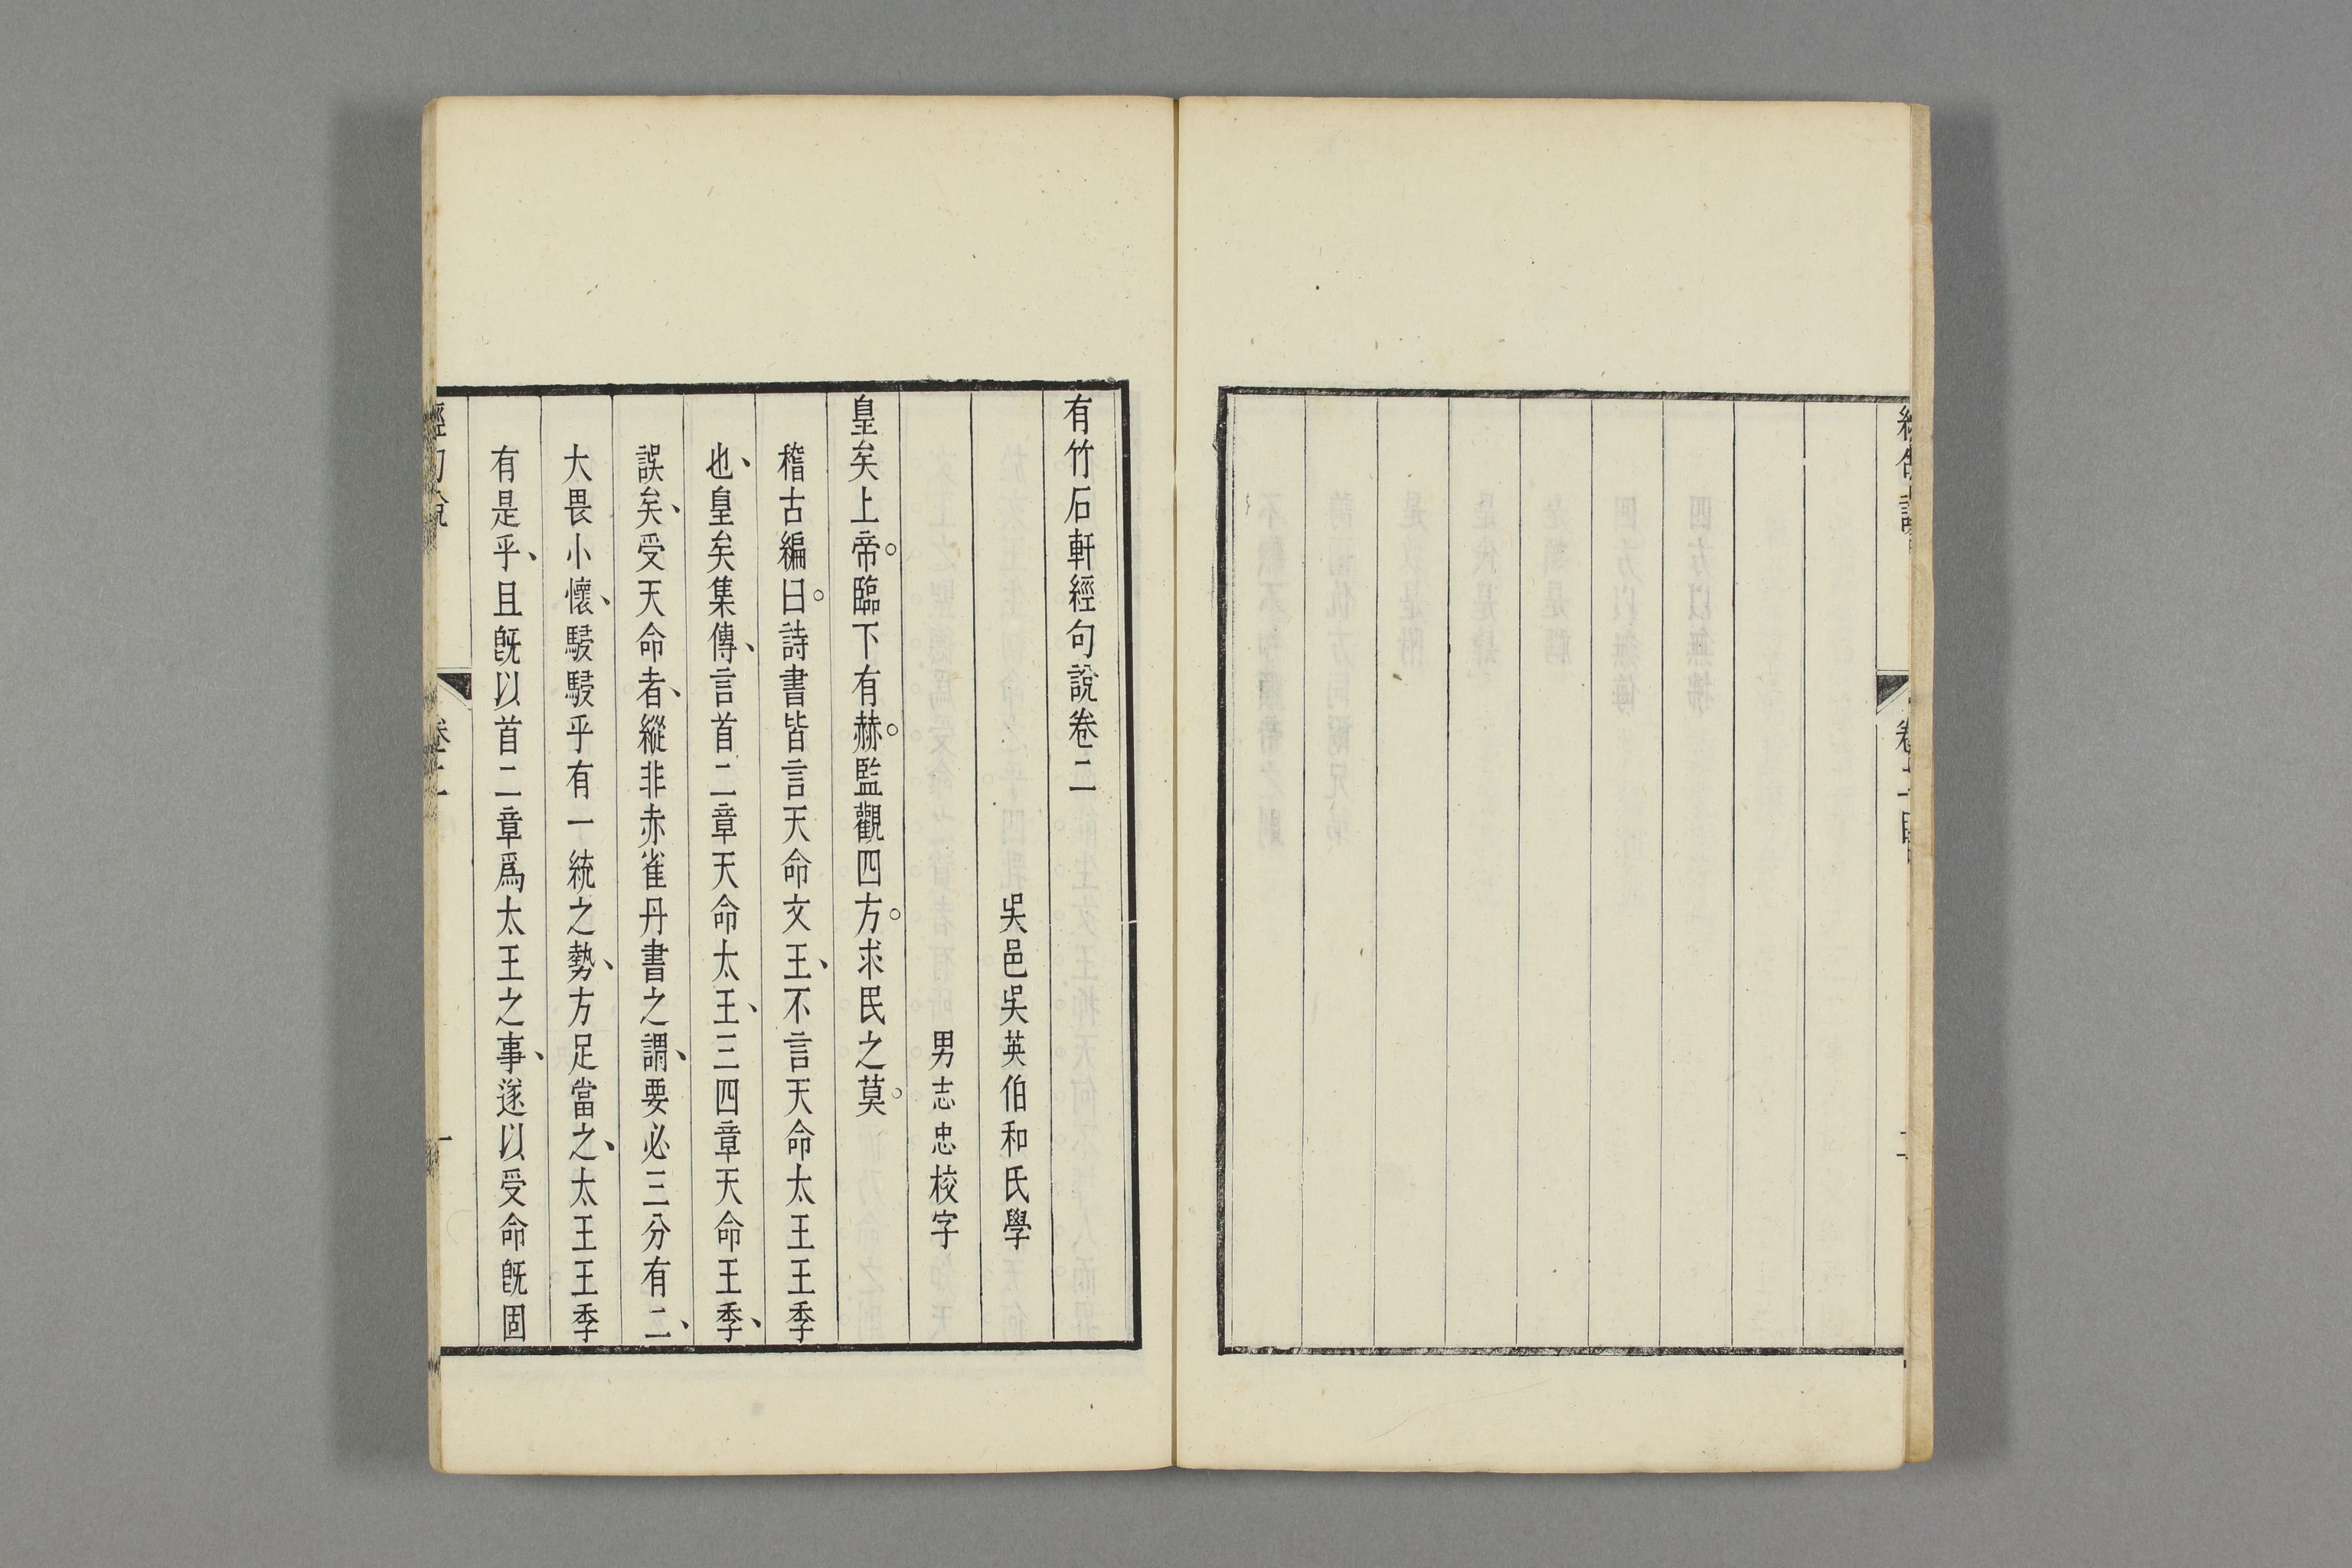 有竹石軒經句說卷二
吳邑吳英伯和氏學
男志忠校字
皇矣上帝。臨下有赫。監觀四方。求民之莫。
稽古編曰。詩書皆言天命文王、不言天命太王王季
也、皇矣集傳、言首二章天命太王、三四章天命王季、
誤矣、受天命者、縱非赤雀丹書之謂、要必三分有二、
大畏小懷、駸駸乎有一統之勢、方足當之、太王王季
有是乎、且旣以首二章爲太王之事、遂以受命旣固
經句說
卷二
一